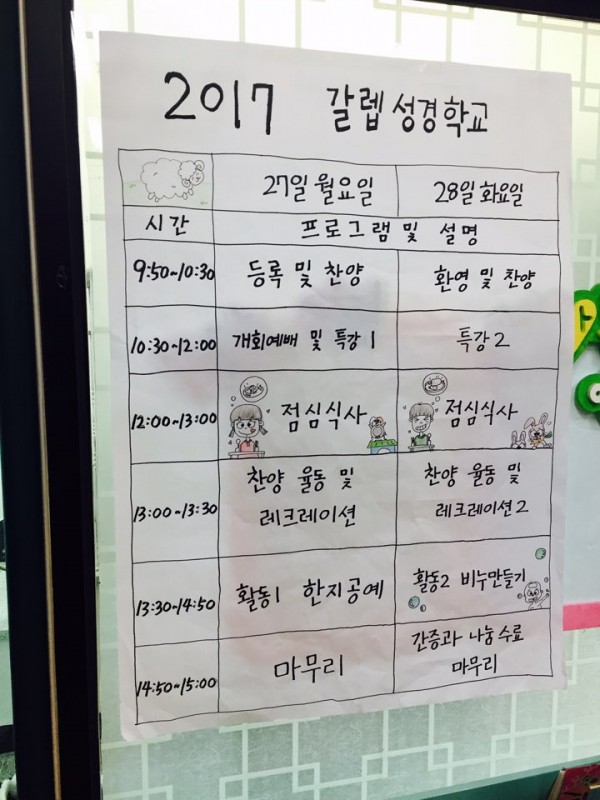 2017 갈렙 성경학교
27일 월요일 28일 화요일
시간 프로그램 및 설명
9:50~10:30 등록 및 찬양 환영 및 찬양
10:30~12:00 개회예배 및 특강 1 특강 2
12:00~13:00 점심식사 점심식사
13:00~13:30 찬양 율동 및 레크레이션 찬양 율동 및 레크레이션 2
13:30~14:50 활동1 한지공예 활동2 비누만들기
14:50~15:00 마무리 간증과 나눔 수료 마무리